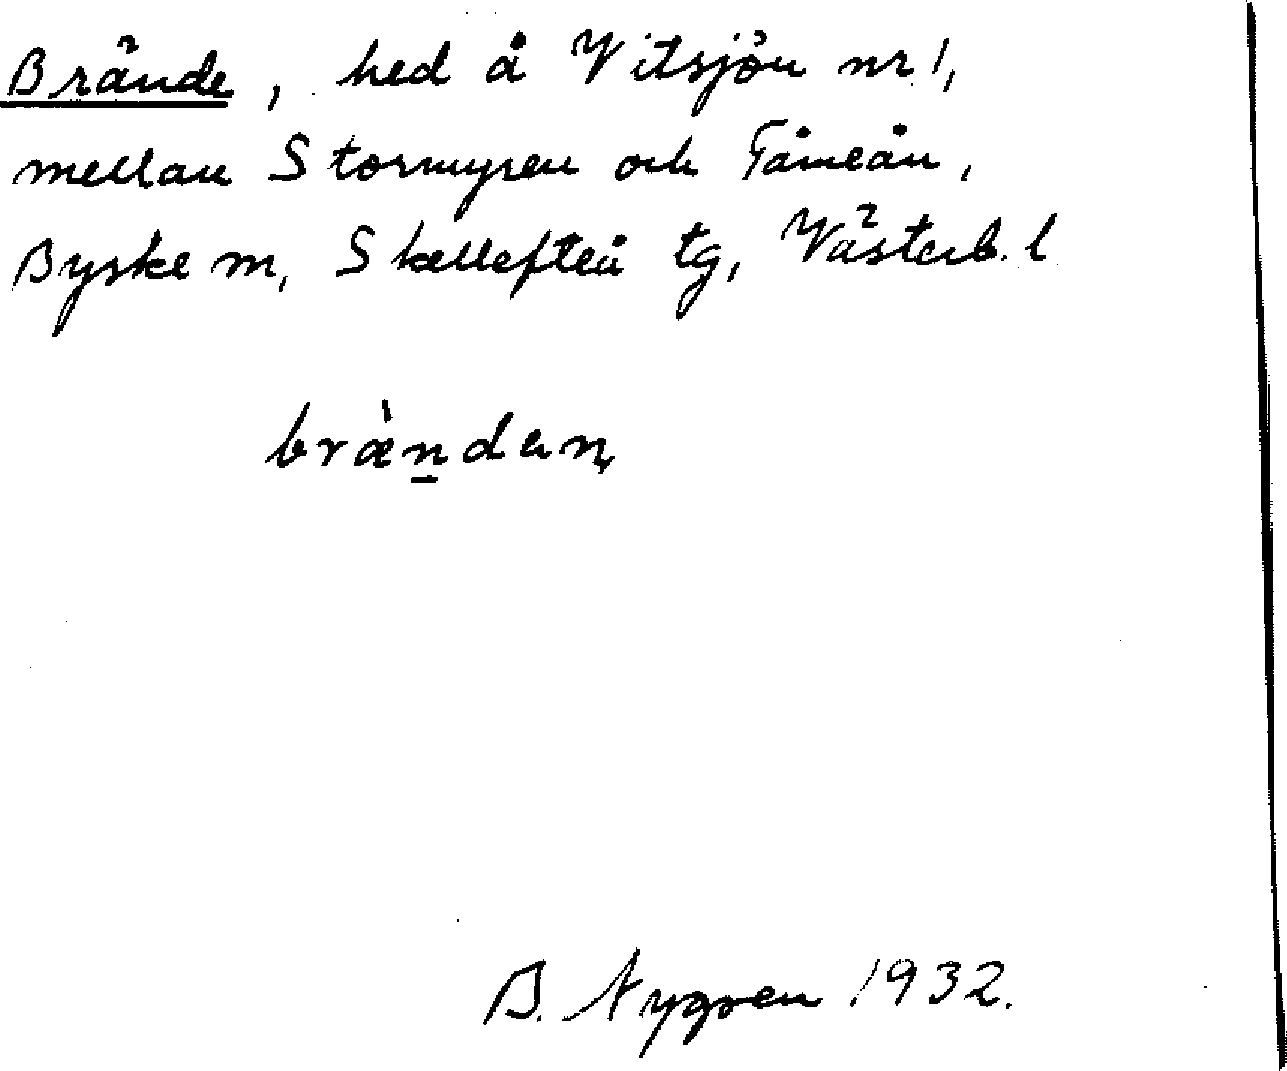 Brände, hed å Vitsjön nr 1,
mellan Stormyren och Tåmeån,
Byske sn, Skellefteå tg, Västerb. l
brä̀ndan
B. Nygren 1932.